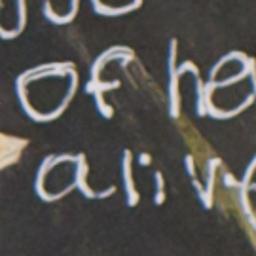 of he
alive